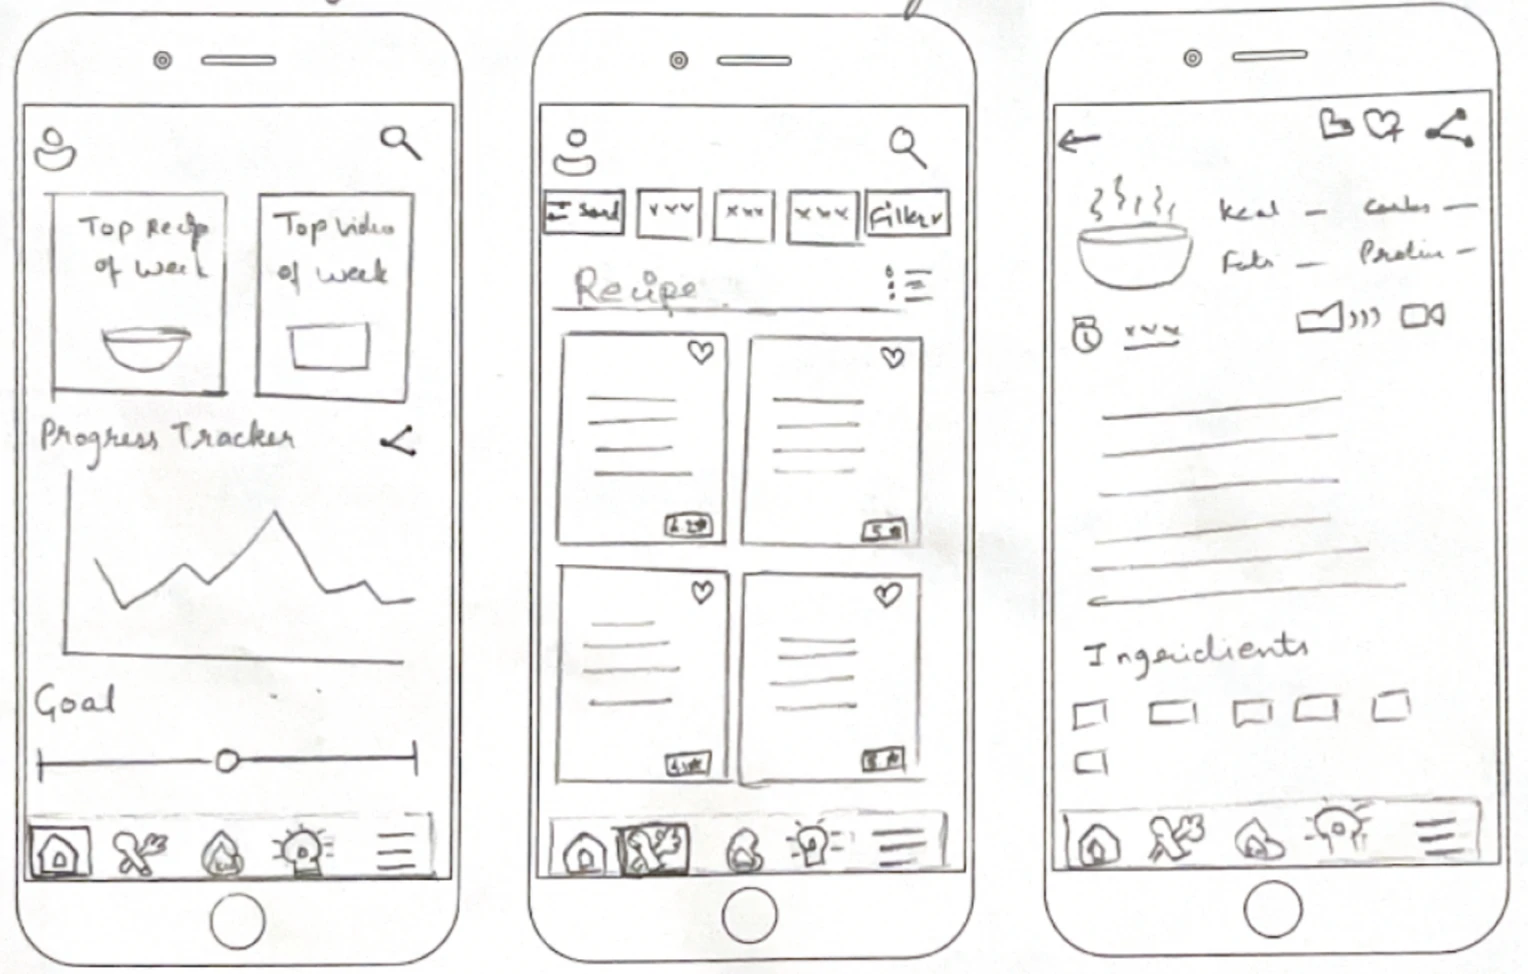 Top Recip
of week
Top video
of week
Progress Tracker
Goal
Sort
xxx
xxx
Filter
Recipe
5
Kcal
Carbs
Fats
Protein
xxx
Ingeridients